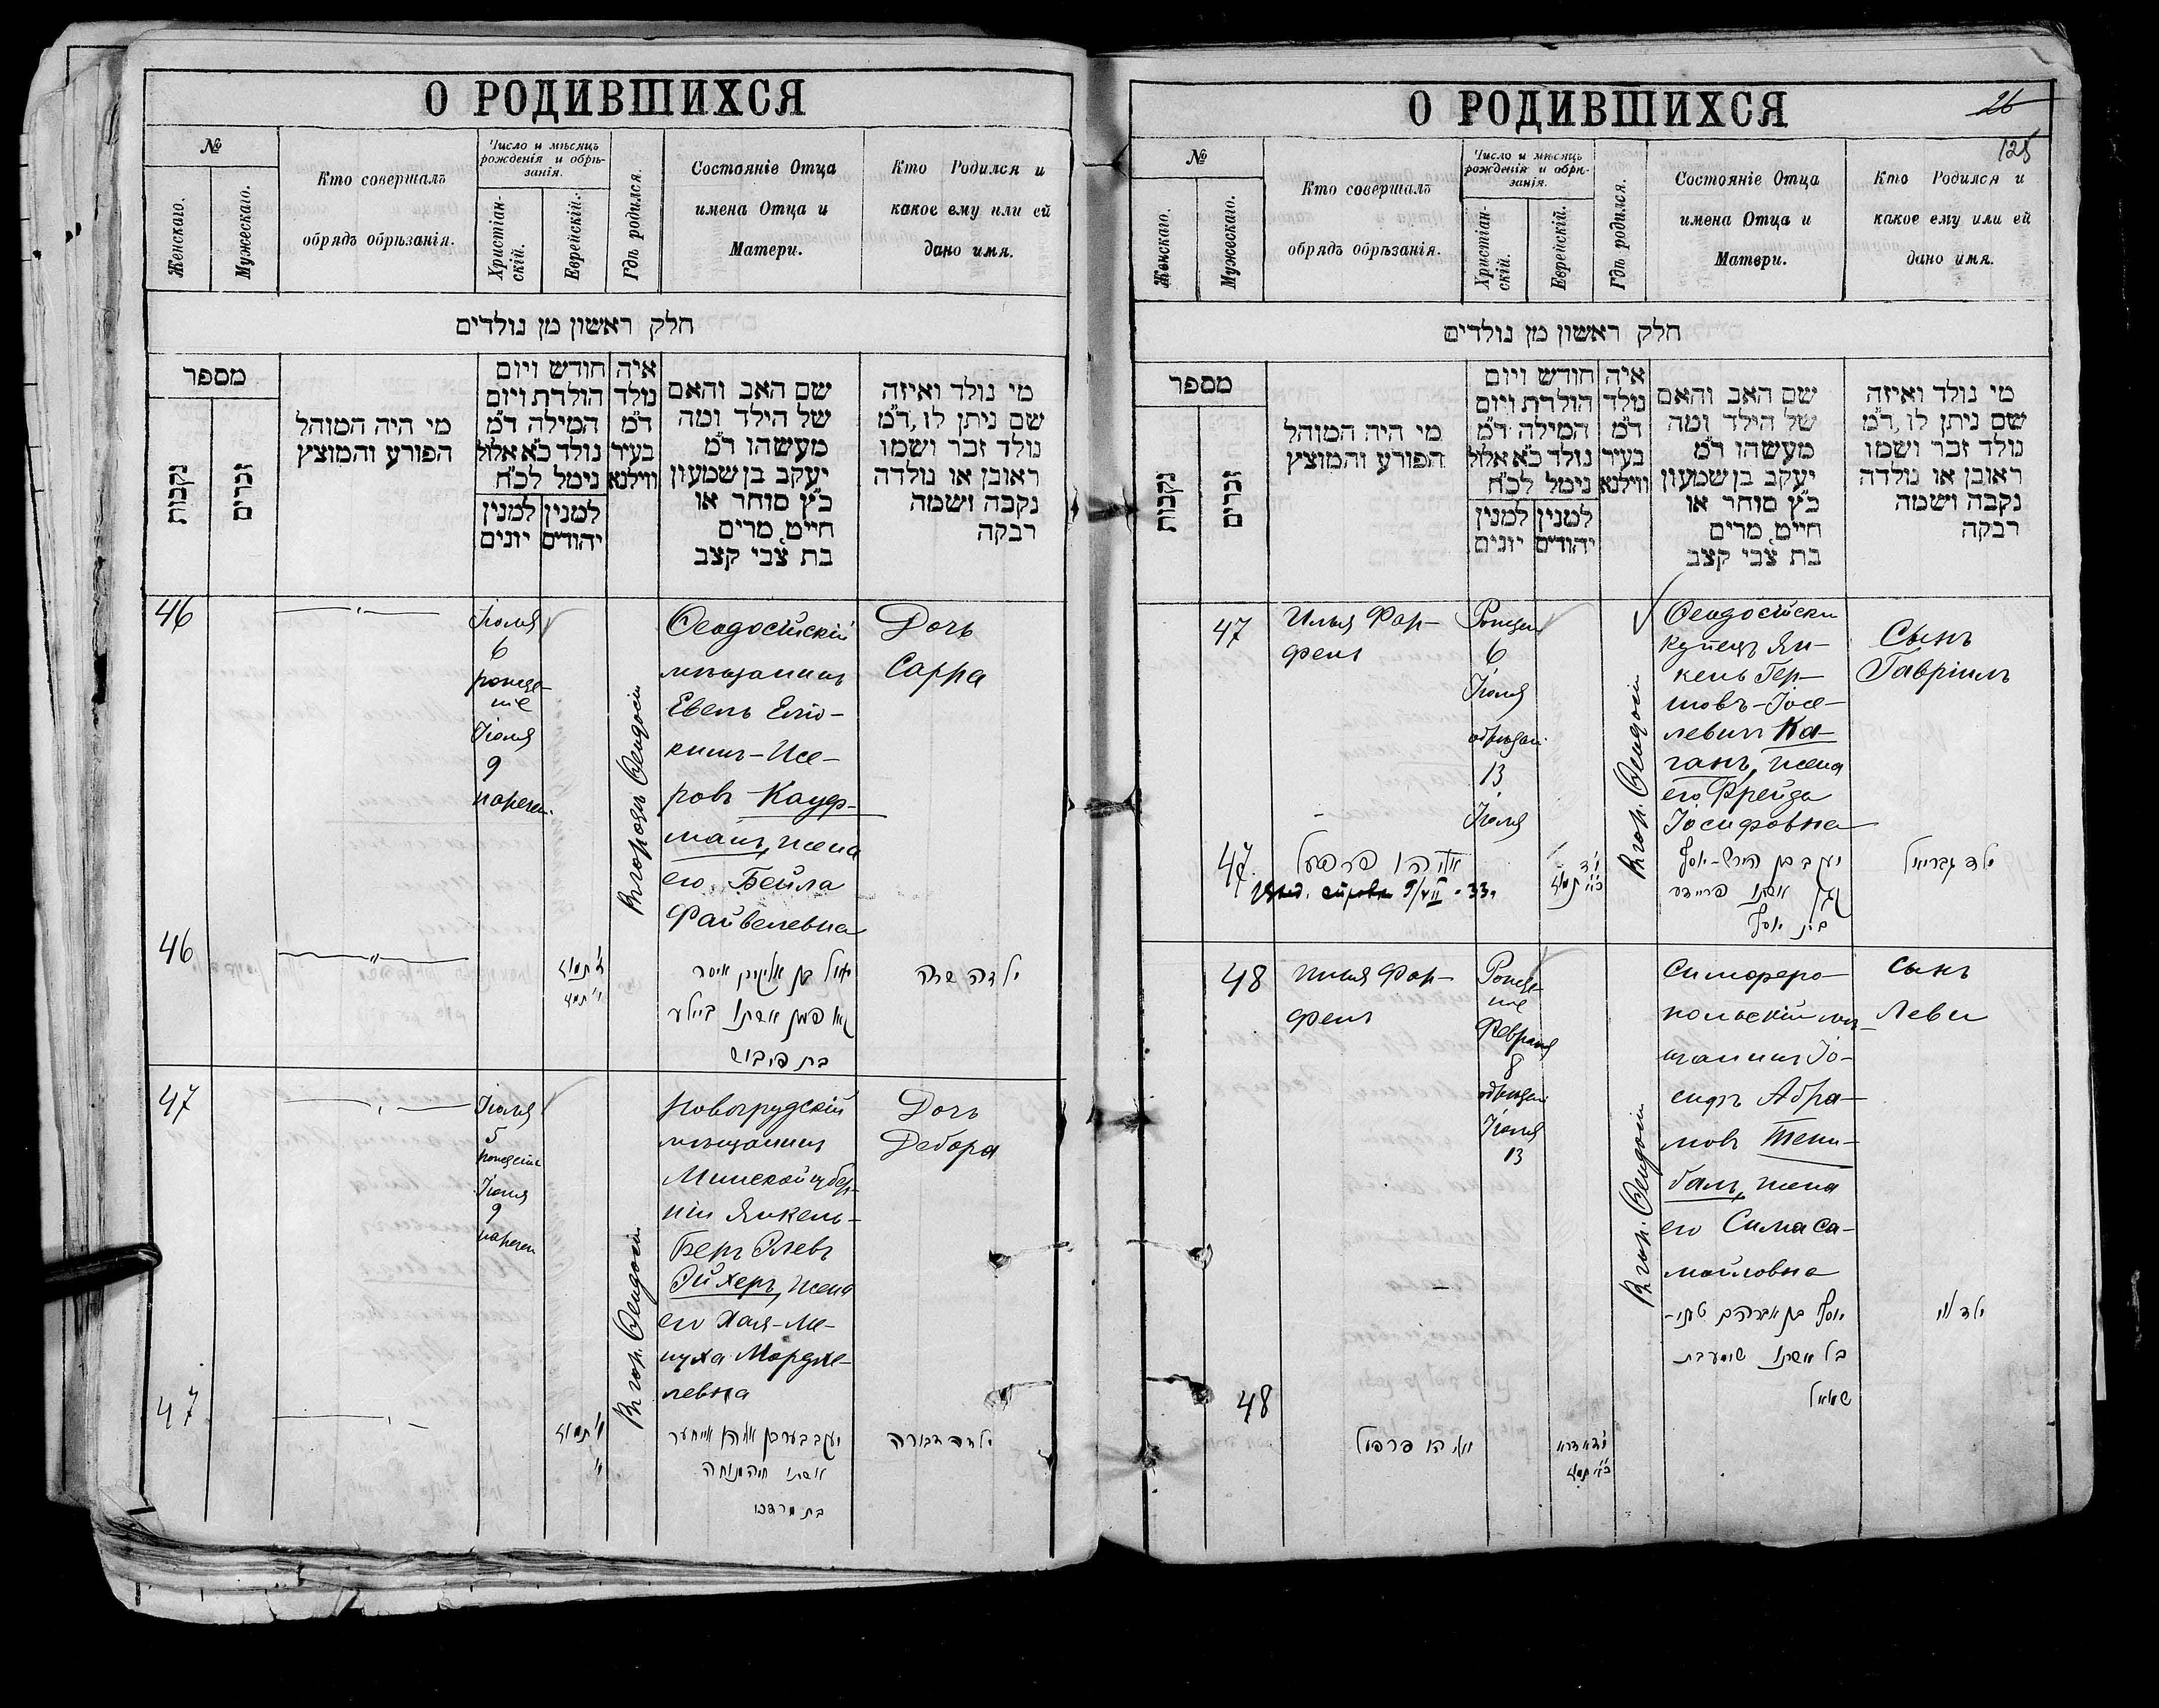 О РОДИВШИХСЯ
№
Женскаго.
Мужескаго.
Кто совершалъ
обрядъ обрѣзанія.
Число и мѣсяцъ
рожденія и обрѣ-
занія.
Христіан-
скій.
Еврейскій.
Гдѣ родился.
Состояніе Отца
имена Отца и
Матери.
Кто Родился и
какое ему или ей
дано имя.
חלק ראשון מן נולדים
מספר
נקבות
זכרים
מי היה המוהל
הפורע והמוצץ
חודש ויום
הולדת ויום
המילה ד״מ
נולד כ״א אלול
נימל לכ״ח
למנין למנין
יהודים יונים
איה
נולד
ד״מ
בעיר
ווילנא
שם האב והאם
של הילד ומה
מעשהו ד״מ
יעקב בן שמעון
כ״ץ סוחר או
חייט, מרים
בת צבי קצב
מי נולד ואיזה
שם ניתן לו, ד״מ
נולד זכר ושמו
ראובן או נולדה
נקבה ושמה
רבקה
46
Іюля
6
рожде-
ніе
Іюля
9
наречен.
Въ городѣ Ѳеодосіи
Ѳеодосійскій
мѣщанинъ
Евель Еліо-
кимъ-Исе-
ровъ Кауф-
манъ, жена
его Бейла
Файвелевна
Дочь
Сарра
46
בת פייבוש
ילדה שרה
47
Іюля
5
рожденіе
Іюля
9
наречен
Въ гор. Ѳеодосіи
Новогрудскій
мѣщанинъ
Минской губер-
ніи Янкель-
Беръ
Эйхеръ, жена
его Хая-Ме-
нуха Мордхе-
левна
Дочь
Дебора
47
יעקב בער בן אהרן אייחער
אשתו חיה מנוחה
בת מרדכי
ילדה דבורה
О РОДИВШИХСЯ
26
125
№
Женскаго.
Мужескаго.
Кто совершалъ
обрядъ обрѣзанія.
Число и мѣсяцъ
рожденія и обрѣ-
занія.
Христіан-
скій.
Еврейскій.
Гдѣ родился.
Состояніе Отца
имена Отца и
Матери.
Кто Родился и
какое ему или ей
дано имя.
חלק ראשון מן נולדים
מספר
נקבות
זכרים
מי היה המוהל
הפורע והמוצץ
חודש ויום
הולדת ויום
המילה ד״מ
נולד כ״א אלול
נימל לכ״ח
למנין למנין
יהודים יונים
איה
נולד
ד״מ
בעיר
ווילנא
שם האב והאם
של הילד ומה
מעשהו ד״מ
יעקב בן שמעון
כ״ץ סוחר או
חייט, מרים
בת צבי קצב
מי נולד ואיזה
שם ניתן לו, ד״מ
נולד זכר ושמו
ראובן או נולדה
נקבה ושמה
רבקה
47
Илья Фар-
фель
6
Іюля
обрѣзан.
13
Іюля
Въ гор. Ѳеодосіи
Ѳеодосійски
купецъ Ян-
кель Гер-
шовъ-Іосе-
левичъ Ка-
ганъ, жена
его Фрейда
Іосифовна
Сынъ
Гавріилъ
47
אליהו פרפל
יעקב בן הירש-יוסף
כהן אשתו פריידע
בת יוסף
ילד גבריאל
48
Илья Фар-
фель
Рожде-
ніе
Февраля
8
обрѣзан.
Іюля
13
Въ гор. Ѳеодосіи
Симферо-
польскій мѣ-
щанинъ Іо-
сифъ Абра-
мовъ Тени-
балъ, жена
его Сима Са-
мойловна
Сынъ
Леви
48
אליהו פרפל
שמואל
ילד לוי